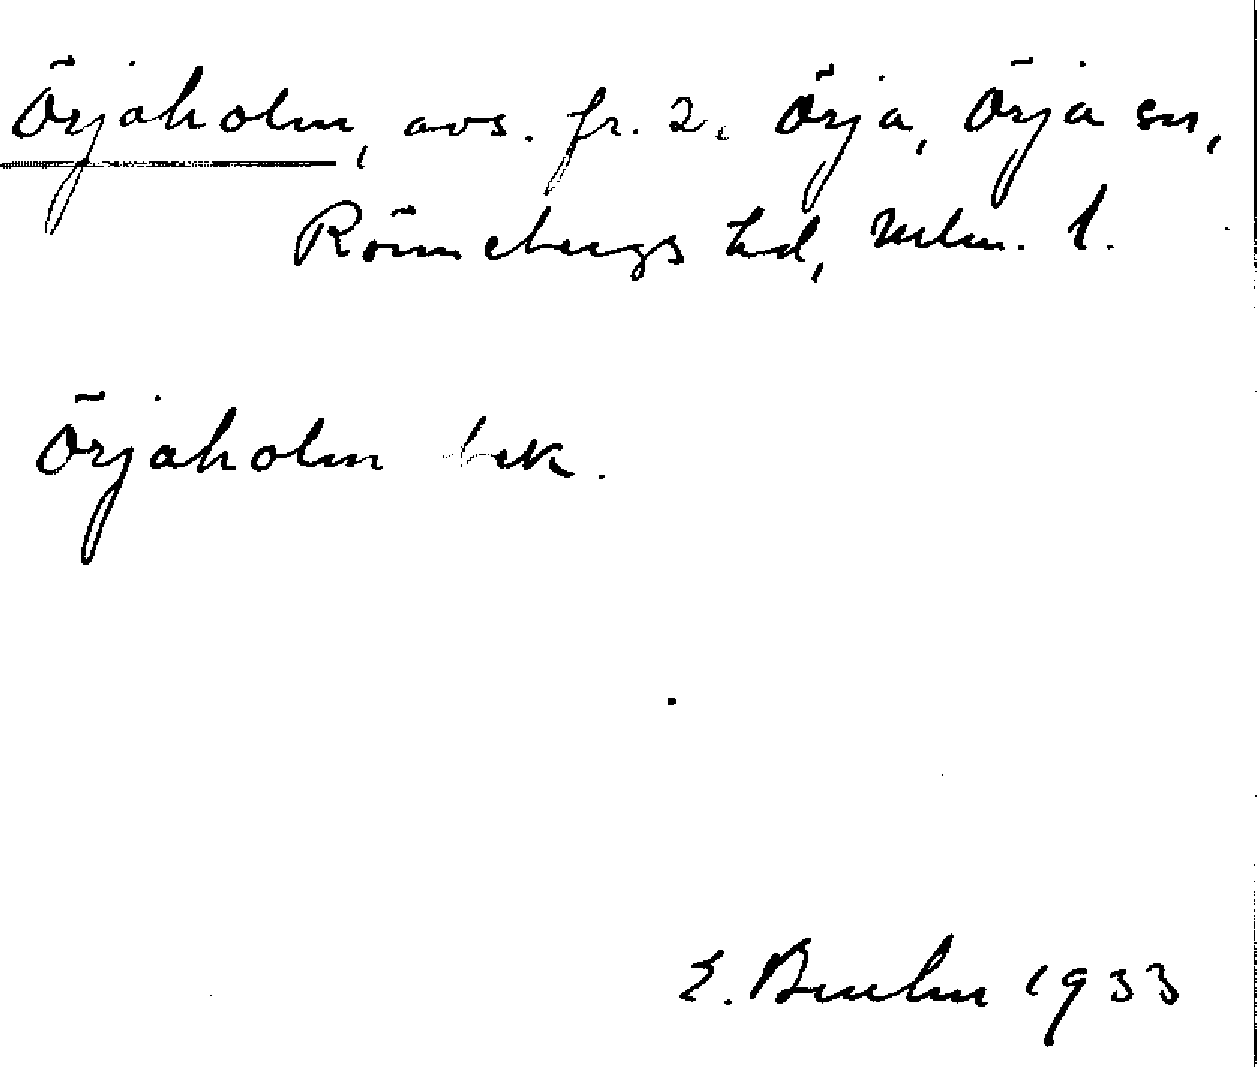 Örjaholm, avs. fr. 2, Örja, Örja sn,
Rönnebergs hd, Mlm. l.
Örjaholm bek.
E. Bruhn 1933